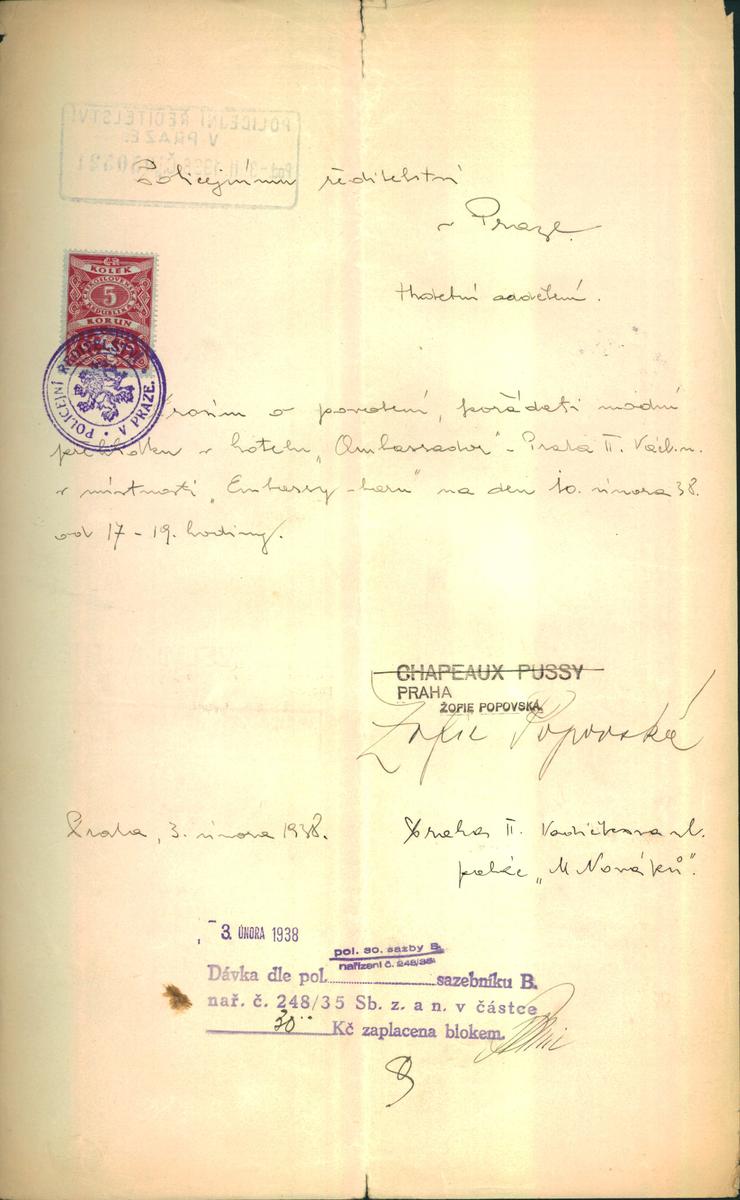 POLICEJNÍ ŘEDITELSTVÍ
V PRAZE.
Policejnímu ředitelství
v Praze.
ČR
KOLEK
5
KORUN
oddělení.
POLICEJNÍ ŘEDITELSTVÍ • V PRAZE.
Prosím o povolení, pořádati módní
přehlídku v hotelu „Ambassador" - Praha II. Václ. n.
v místnosti „Embassy-baru" na den 10. února 38.
od 17 - 19. hodiny.
CHAPEAUX PUSSY
PRAHA
ŽOFIE POPOVSKÁ
Žofie Popovská
Praha, 3. února 1938.
Praha II. Vodičkova ul.
palác „U Nováků".
- 3. ÚNORA 1938
pol. 80. sazby B.
nařízení č. 248/35
Dávka dle pol. sazebníku B.
nař. č. 248/35 Sb. z. a n. v částce
30 Kč zaplacena blokem.